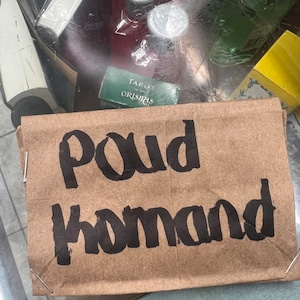 TAROT
ORISHAS
Poud
Komand